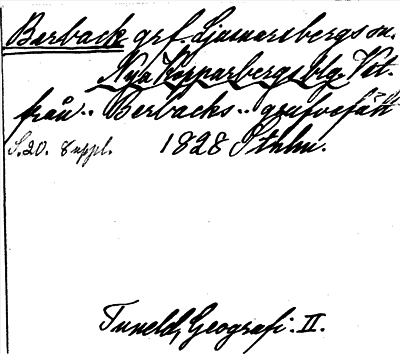 Berback grf. Ljusnarsbergs sn.
Nya Kopparbergs blg. Vit.
från.. Berbacks.. grufvefält
S. 20. Suppl. 1828 Sthlm.
Tuneld, Geografi. II.